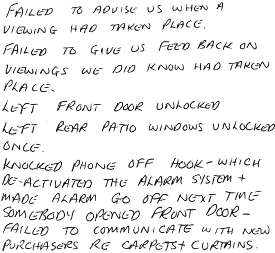 FAILED TO ADVISE US WHEN A
VIEWING HAD TAKEN PLACE.
FAILED TO GIVE US FEED BACK ON
VIEWINGS WE DID KNOW HAD TAKEN
PLACE.
LEFT FRONT DOOR UNLOCKED
LEFT REAR PATIO WINDOWS UNLOCKED
ONCE.
KNOCKED PHONE OFF HOOK - WHICH
DE-ACTIVATED THE ALARM SYSTEM +
MADE ALARM GO OFF NEXT TIME
SOMEBODY OPENED FRONT DOOR -
FAILED TO COMMUNICATE WITH NEW
PURCHASERS RE CARPETS + CURTAINS.